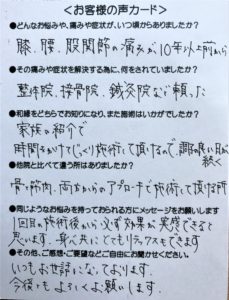 <お客様の声カード>
●どんなお悩みや、痛みや症状が、いつ頃からありましたか？
膝、腰、股関節の痛みが10年以上前から
●その痛みや症状を解決する為に、何をされていましたか？
整体院、接骨院、鍼灸院など頼った
●和縁をどちらでお知りになり、また施術はいかがでしたか？
家族の紹介で
時間をかけてじっくり施術して頂けるので、調子の良い日が
続く
●他院と比べて違う所はありましたか？
骨・筋肉、両方からのアプローチで施術して頂ける所
●同じようなお悩みを持っておられる方にメッセージをお願いします
1回目の施術後から必ず効果が実感できると
思います。身心共にとてもリラックスもできます
●その他、ご感想・ご要望などご自由にお聞かせください。
いつもお世話になっております。
今後もよろしくお願いします。